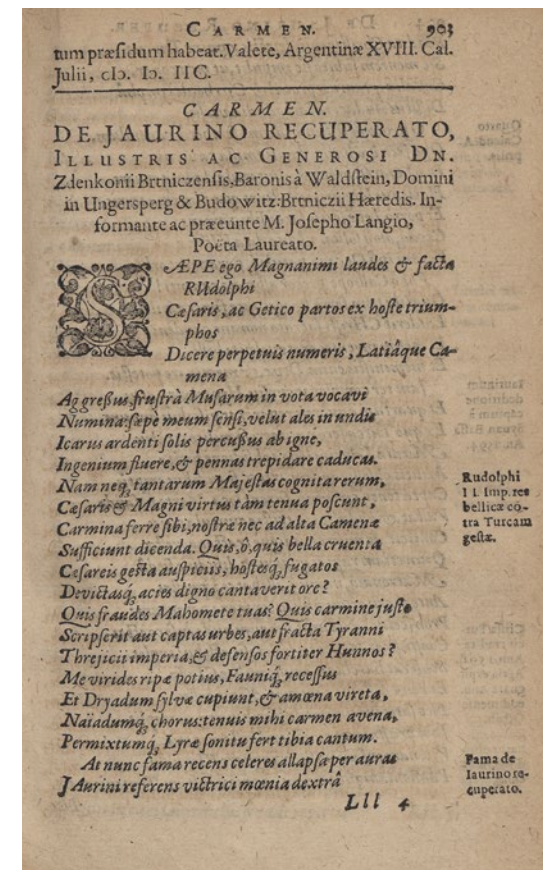 CARMEN. 903
tum præsidum habeat. Valete, Argentinæ XVIII. Cal.
Julii, cIɔ. Iɔ. IIC.
CARMEN.
DE JAURINO RECUPERATO,
ILLUSTRIS AC GENEROSI DN.
Zdenkonii Brtniczensis, Baronis à Waldstein, Domini
in Ungersperg & Budowitz: Brtniczii Hæredis. In-
formante ac præeunte M. Josepho Langio,
Poëta Laureato.
SÆPE ego Magnanimi laudes & facta
RUdolphi
Cæsaris, ac Getico partos ex hoste trium-
phos
Dicere perpetuis numeris, Latiâque Ca-
mena
Aggreßus, frustrà Musarum in vota vocavi
Numina: sæpè meum sensi, velut ales in undis
Icarus ardenti solis percußus ab igne,
Ingenium fluere, & pennas trepidare caducas.
Nam neq́; tantarum Majestas cognita rerum,
Cæsaris & Magni virtus tàm tenua poscunt,
Carmina ferre sibi, nostræ nec ad alta Camenæ
Sufficiunt dicenda. Quis, ô, quis bella cruenta
Cæsareis gesta auspiciis, hostesq́; fugatos
Devictasq́; acies digno cantaverit ore?
Quis fraudes Mahomete tuas? Quis carmine justo
Scripserit aut captas urbes, aut fracta Tyranni
Threjicii imperia, & defensos fortiter Hunnos?
Me virides ripæ potius, Fauniq́; recessus
Et Dryadum sylvæ cupiunt, & amœna vireta,
Naïadumq́; chorus: tenuis mihi carmen avena,
Permixtumq́; Lyræ sonitu fert tibia cantum.
At nunc fama recens celeres allapsa per auras
JAurini referens victrici mœnia dextrâ
Lll 4
Rudolphi
II. Imp. res
bellicæ co-
tra Turcam
gestæ.
Fama de
Iaurino re-
cuperato.